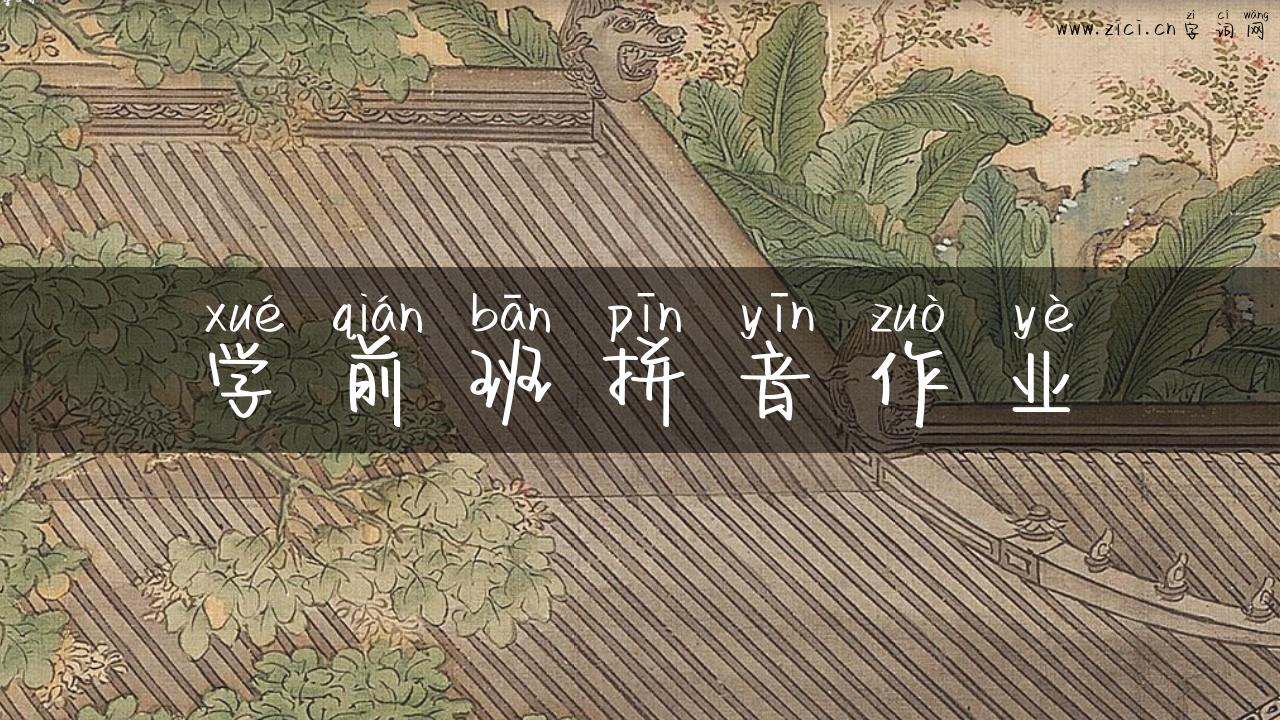 zì cí wǎng
www.zici.cn 字词网
xué qián bān pīn yīn zuò yè
学前班拼音作业